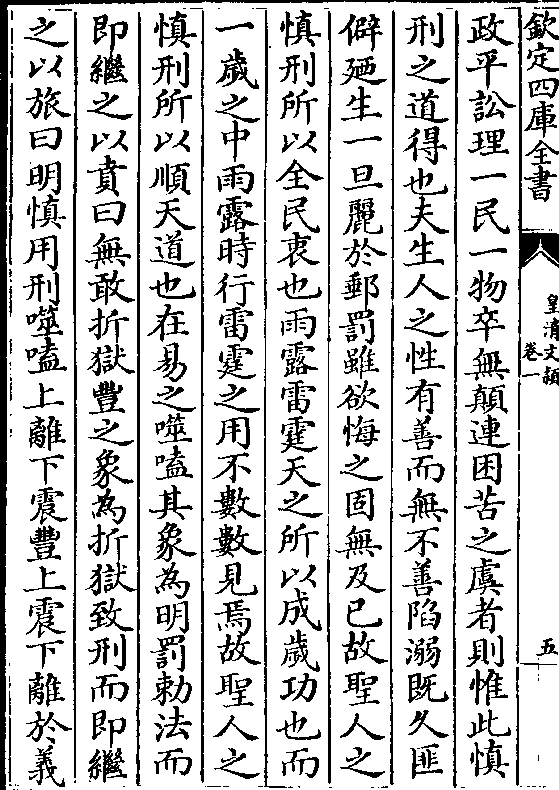 欽定四庫全書
皇清文穎
卷一
五
政平訟理一民一物卒無顛連困苦之虞者則惟此慎
刑之道得也夫生人之性有善而無不善陷溺既久匪
僻廼生一旦麗於郵罰雖欲悔之固無及已故聖人之
慎刑所以全民衷也雨露雷霆天之所以成歲功也而
一歲之中雨露時行雷霆之用不數數見焉故聖人之
慎刑所以順天道也在易之噬嗑其象為明罰勅法而
即繼之以賁曰無敢折獄豐之象為折獄致刑而即繼
之以旅曰明慎用刑噬嗑上離下震豐上震下離於義